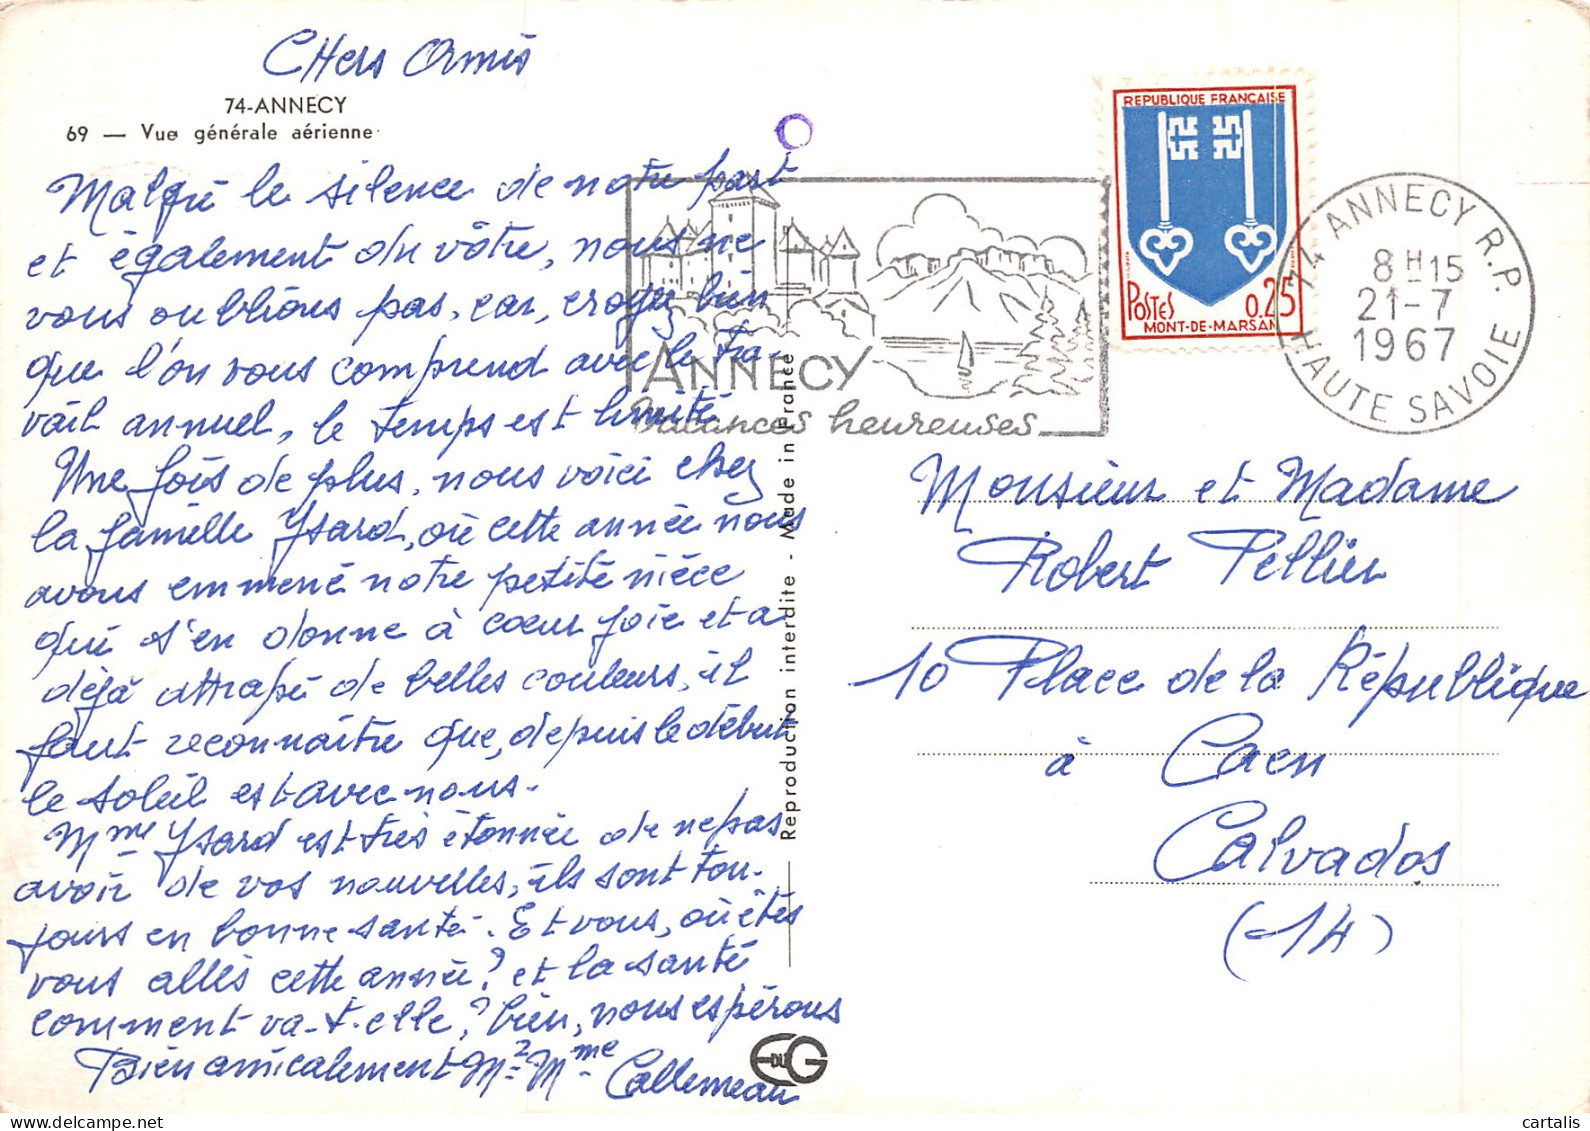 CHers Amis
74-ANNECY
69 — Vue générale aérienne
Malgré le silence de notre part
et également du vôtre, nous ne
vous oublions pas, car, croyez bien
que l'on vous comprend avec le tra-
vail annuel, le temps est limité
Une fois de plus, nous voici chez
la famille Ysard, où cette année nous
avons emmené notre petite nièce
qui s'en donne à coeur joie et a
déjà attrapé de belles couleurs, il
faut reconnaître que, depuis le début
le soleil est avec nous.
Mme Ysard est très étonnée de ne pas
avoir de vos nouvelles, ils sont tou-
jours en bonne santé. Et vous, où êtes
vous allés cette année? et la santé
comment va-t-elle? bien, nous espérons
Bien amicalement Mr Mme Callemeau
Reproduction interdite - Made in France
EDUG
ANNECY
Vacances heureuses
REPUBLIQUE FRANÇAISE
POSTES 0.25
MONT-DE-MARSAN
74 ANNECY R.P.
8H15
21-7
1967
HAUTE SAVOIE
Monsieur et Madame
Robert Pellier
10 Place de la République
à Caen
Calvados
(-14)
delcampe.net
cartalis